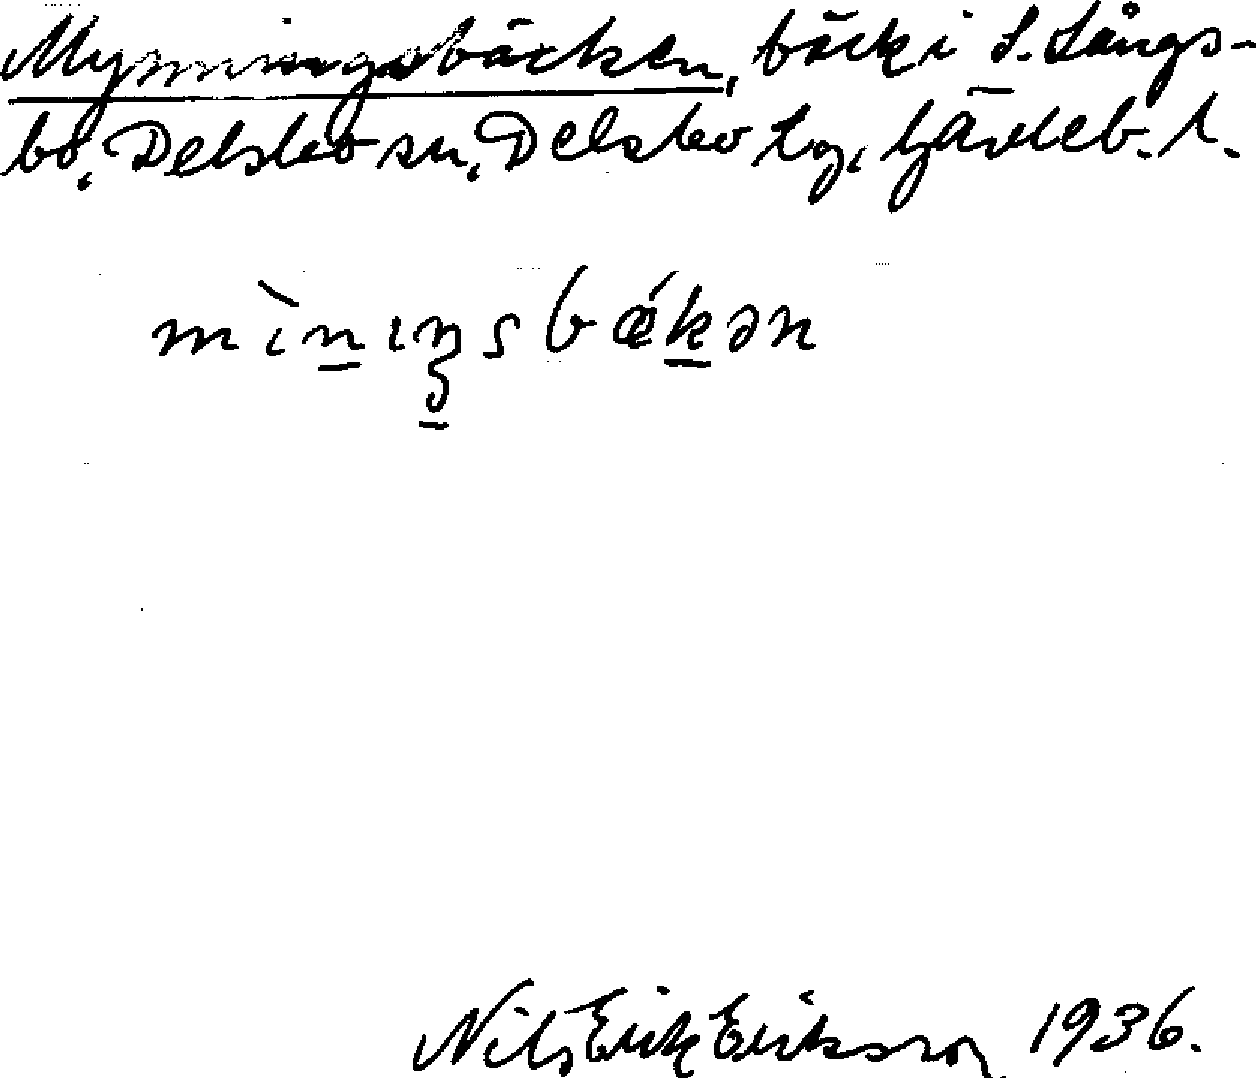 Mynningsbäcken, bäck i S. Långs-
bo, Delsbo sn, Delsbo tg, Gävleb. l.
mìnıŋsbǽkən
Nils Erik Eriksson 1936.